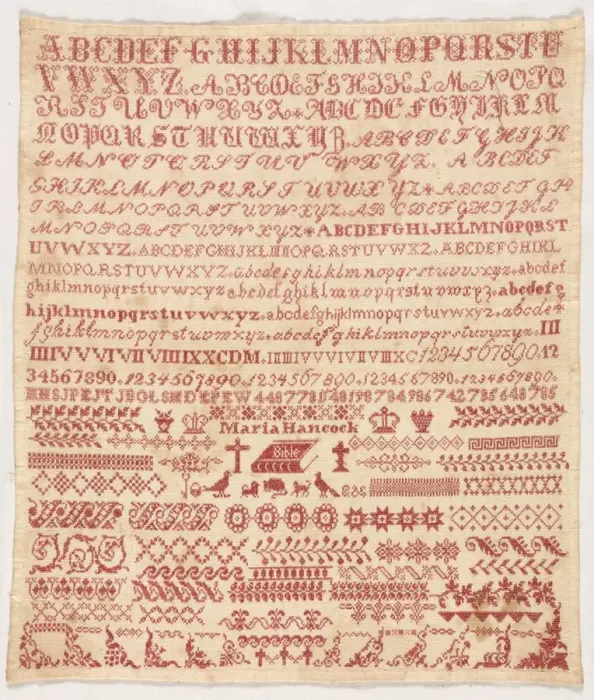 ABCDEFGHIJKLMNOPQRSTU
VWXYZ.ABCDEFGHIJKLMNOPQ
RSTUVWXYZ*ABCDEFGHIJKLM
NOPQRSTUVWXYZ.ABCDEFGHIJK
LMNOPQRSTUVWXYZ. ABCDEF
GHIJKLMNOPQRSTUVWXYZ*ABCDEFGH
IJKLMNOPQRSTUVWXYZ.ABCDEFGHIJKL
MNOPQRSTUVWXYZ*ABCDEFGHIJKLMNOPQRST
UVWXYZ.ABCDEFGHIJKLMNOPQRSTUVWXZ.ABCDEFGHIKL
MNOPQRSTUVWXYZ.abcdefghiklmnopqrstuvwxyz.abcdef
ghijklmnopqrstuvwxyz.abcdefghiklmnopqrstuvwxyz.abcdefg
hijklmnopqrstuvwxyz.abcdefghijklmnopqrstuvwxyz.abcde
fghiklmnopqrstuvwxyz.abcdefghiklmnopqrstuvwxyz.III
1234567890.12
34567890.1234567890.1234567890.1234567890.1234567890.
Maria Hancock
Bible